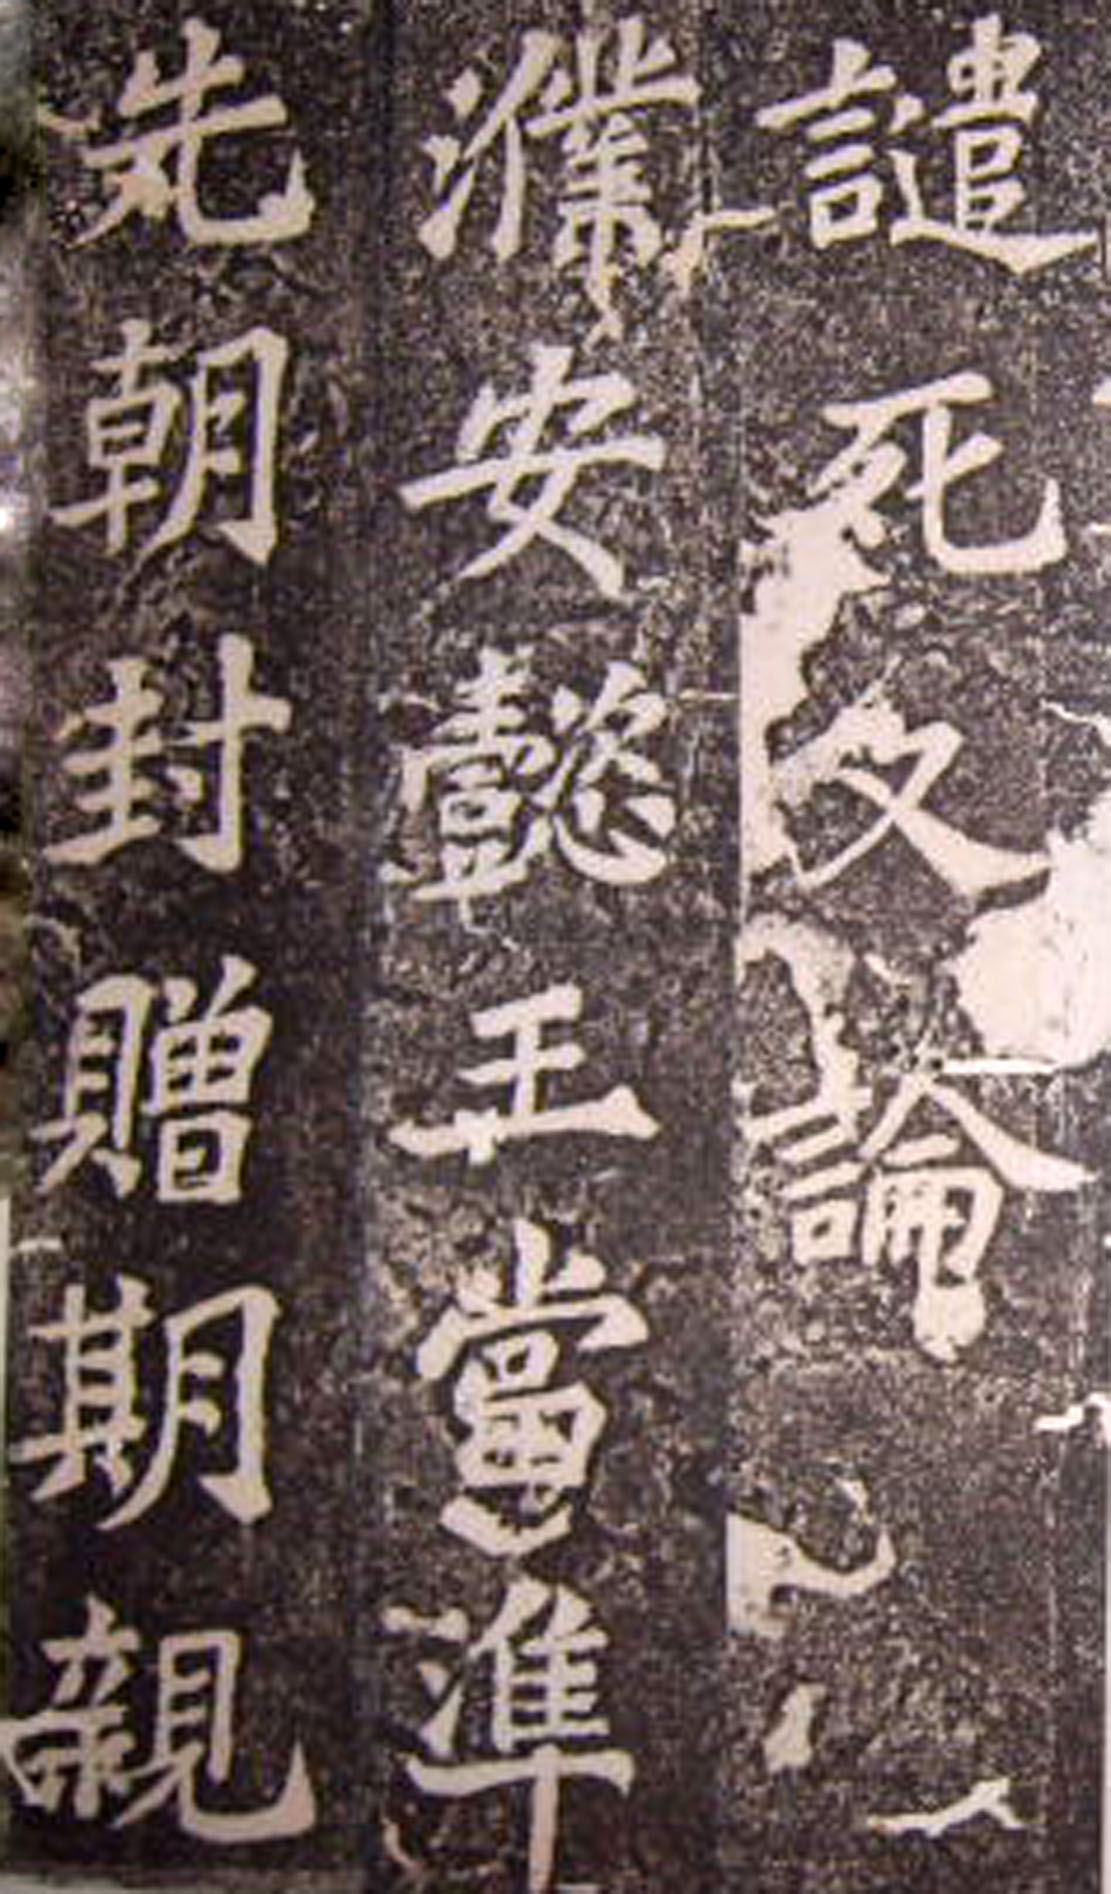 譴死又論
濮安懿王當準
先朝封贈期親